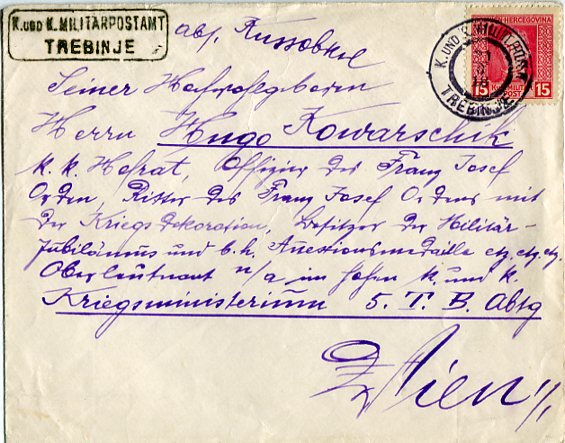 K. UND K. MILITÄRPOSTAMT
TREBINJE
HERCEGOVINA
15 15
K. UND K. MILIT. POST
TREBINJE
abs.
Seiner Hochwohlgeboren
Herrn Hugo Kowarschik
k. k. Hofrat, Offizier des Franz Josef
Orden, Ritter des Franz Josef Ordens mit
der Kriegsdekoration, Besitzer der Militär-
Jubiläums und b. h. etz. etz. etz.
Oberleutnant n/a im hohen k. und k.
Kriegsministerium 5. T. B. Abtg
Wien 1/1